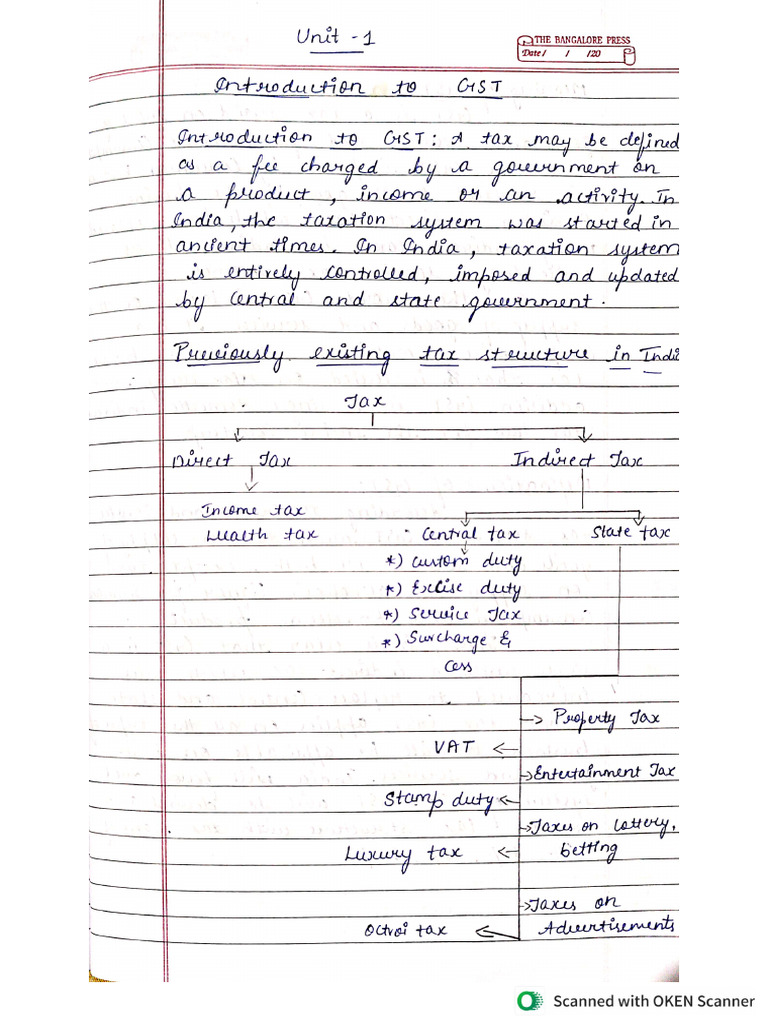 Unit - 1
THE BANGALORE PRESS
Date / / /20
Introduction to GST
Introduction to GST: A tax may be defined
as a fee charged by a government on
a product, income or an activity. In
India, the taxation system was started in
ancient times. In India, taxation system
is entirely controlled, imposed and updated
by central and state government.
Previously existing tax structure in Indi
Tax
Direct Tax Indirect Tax
Income tax
Wealth tax Central tax State tax
*) custom duty
*) Excise duty
*) Service Tax
*) Surcharge &
Cess
Property Tax
VAT
Entertainment Tax
Stamp duty
Taxes on lottery,
Luxury tax betting
Taxes on
Octroi tax Advertisements
Scanned with OKEN Scanner